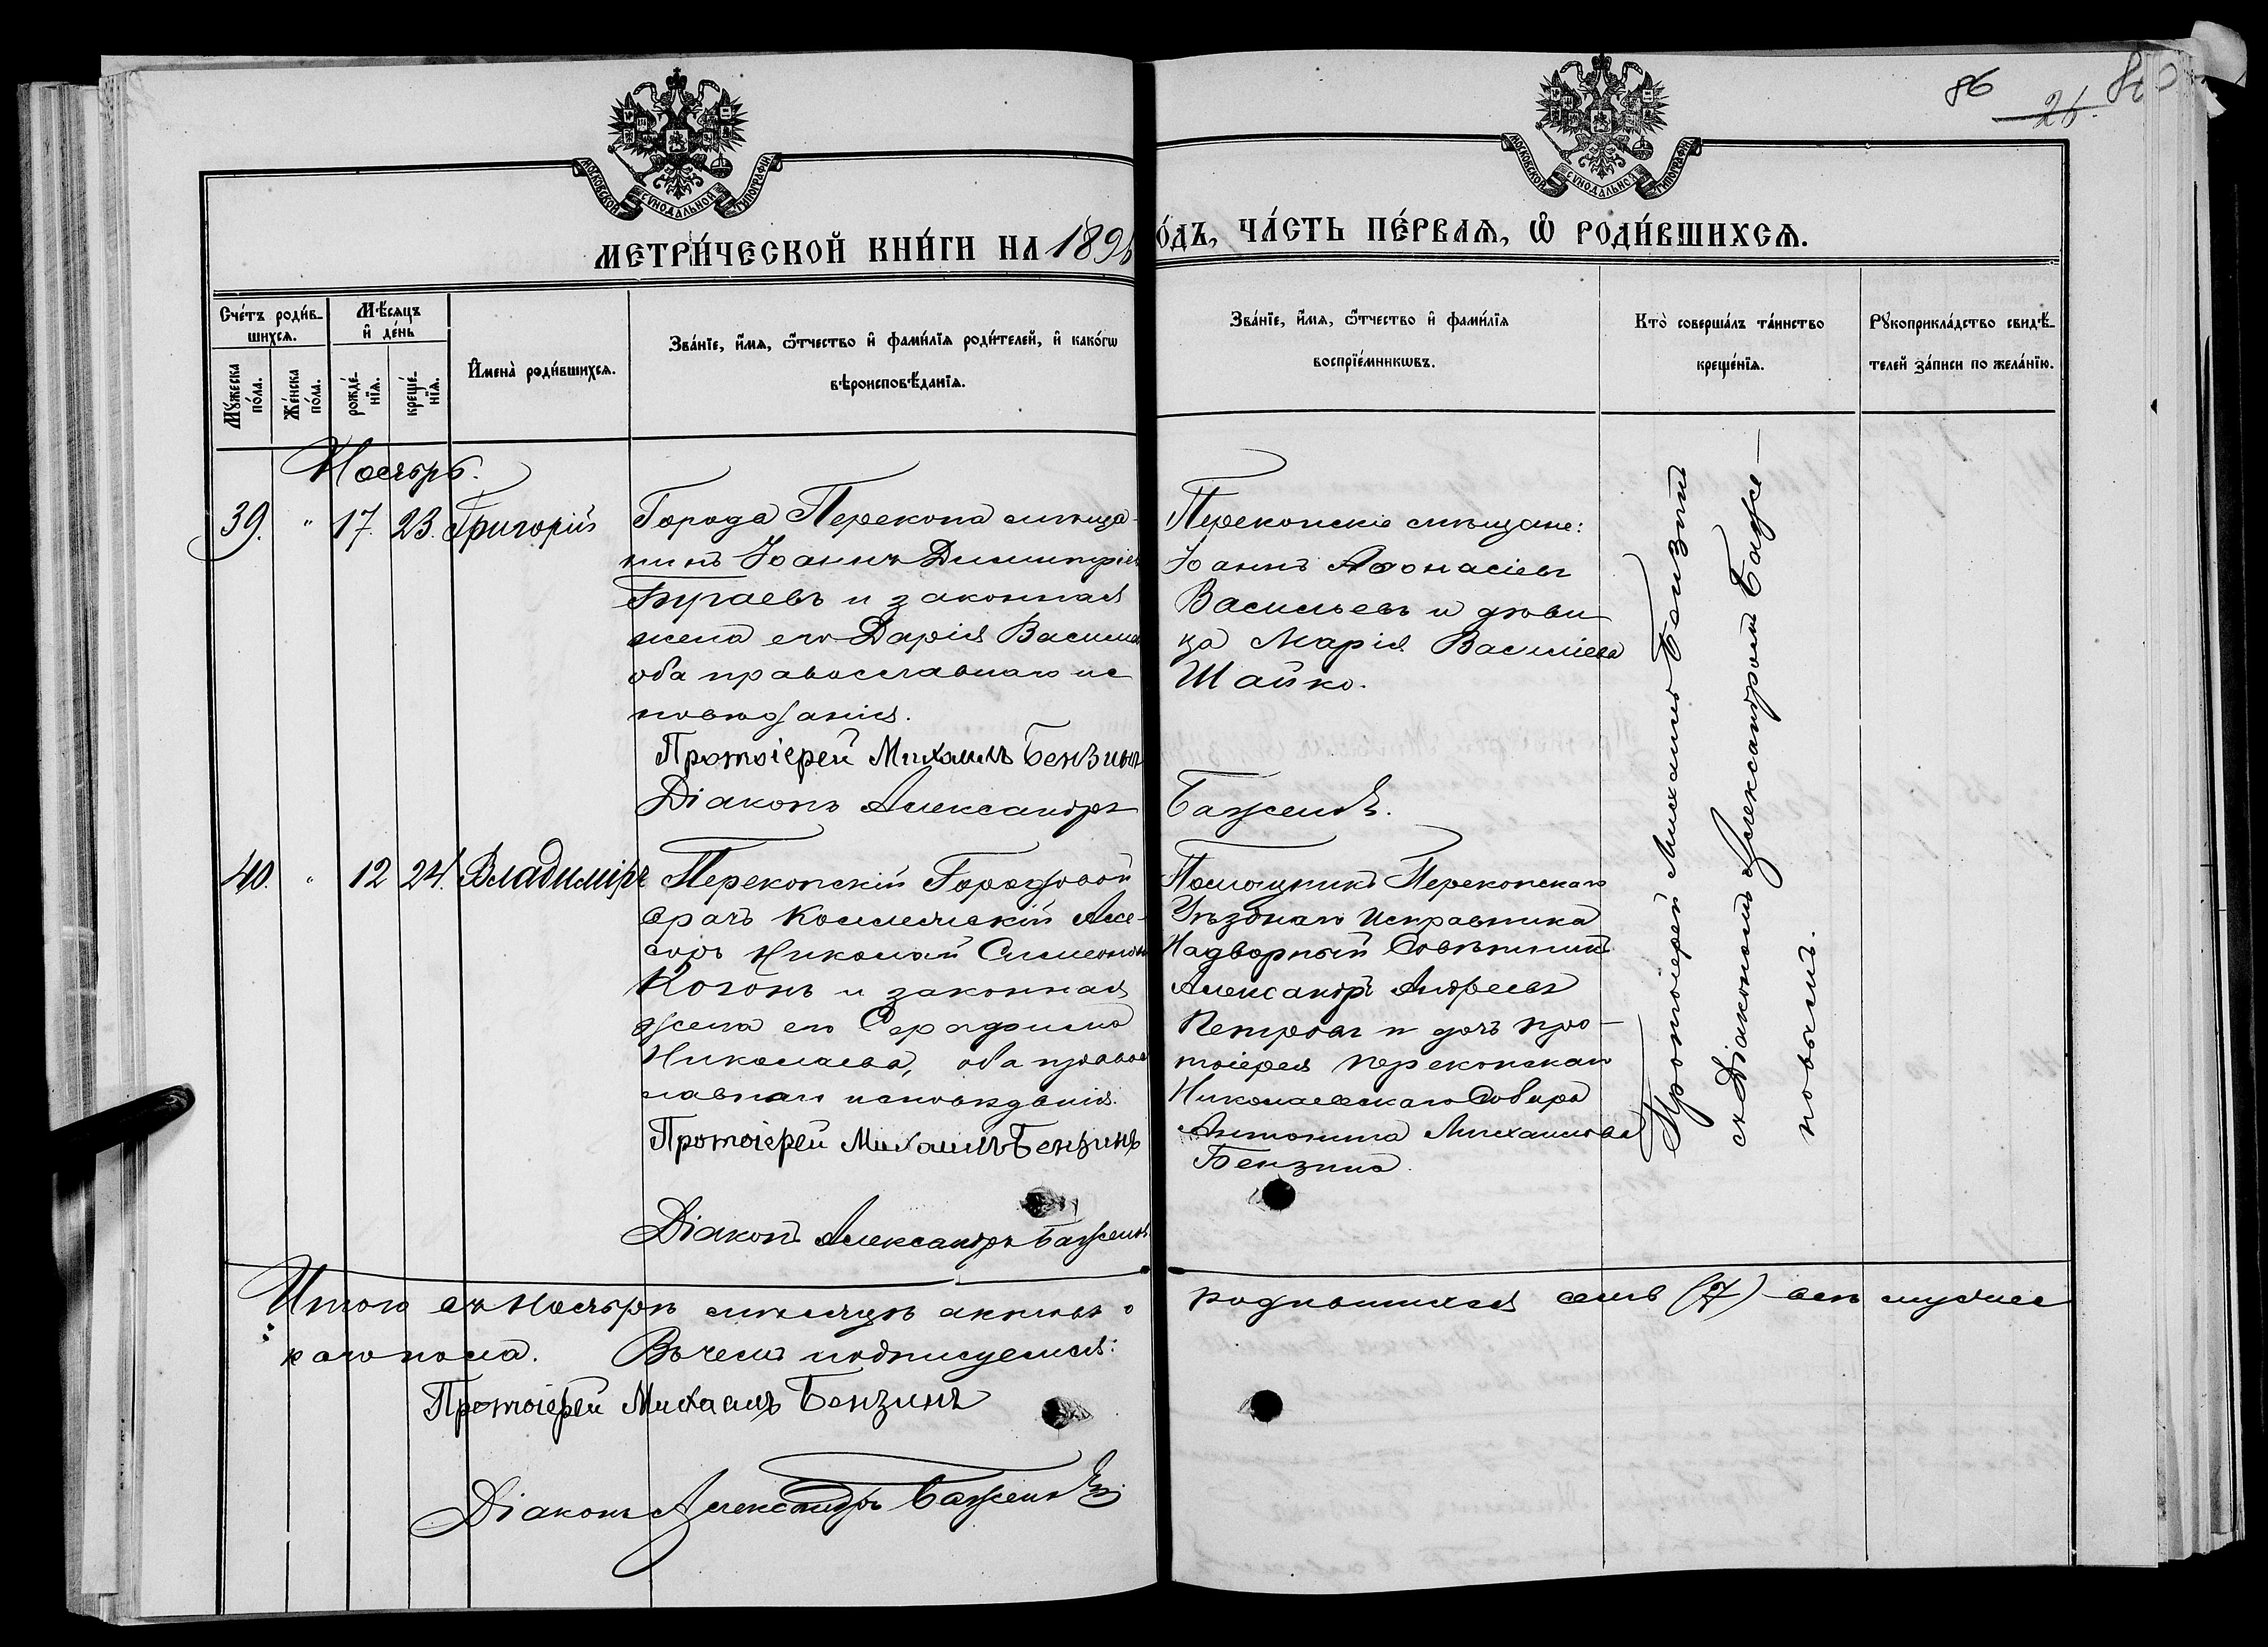 86
26.
МОСКОВСКОЙ СѴНОДАЛЬНОЙ ТИПОГРАФІИ
МОСКОВСКОЙ СѴНОДАЛЬНОЙ ТИПОГРАФІИ
МЕТРИ́ЧЕСКОЙ КНИ́ГИ НА 189
О́ДЪ, ЧА́СТЬ ПЕ́РВАѦ, Ѡ҆ РОДИ́ВШИХСѦ.
Сче́тъ роди́в-
шихсѧ.
Мѣ́сѧцъ
и҆ де́нь
Мꙋ́жеска
по́ла.
Же́нска
по́ла.
рожде́-
нїѧ.
креще́-
нїѧ.
И҆мена̀ роди́вшихсѧ.
Зва́нїе, и҆́мѧ, ѻ҆́тчество и҆ фами́лїѧ роди́телей, и҆ како́гѡ
вѣроисповѣ́данїѧ.
Зва́нїе, и҆́мѧ, ѻ҆́тчество и҆ фами́лїѧ
воспрїе́мникѡвъ.
Кто̀ соверша́лъ та́инство
креще́нїѧ.
Рꙋкоприкла́дство свидѣ́-
телей за́писи по жела́нїю.
Ноябрь.
39. " 17. 23. Григорій
Города Перекопа мѣща-
нинъ Іоаннъ Димитріев
Бугаевъ и законная
жена его Дарія Васильев
оба православнаго ис
повѣданія.
Протоіерей Михаилъ Бензинъ
Діаконъ Александръ
Перекопскіе мѣщане:
Іоаннъ Аѳонасіевъ
Васильевъ и дѣви
ца Марія Василіева
Шайко.
Баженовъ.
40. " 12 24. Владиміръ
Перекопскій Городовой
врачъ Коллежскій Ассе-
соръ Николай Симеонов
Когонъ и законная
жена его Серафима
Николаева, оба правос
лавнаго исповѣданія.
Протоіерей Михаилъ Бензинъ
Діаконъ Александръ Баженовъ
Помощникъ Перекопскаго
Уѣзднаго Исправника
Надворный Совѣтникъ
Александръ Андреевъ
Петровъ и дочь про-
тоіерея Перекопскаго
Николаевскаго Собора
Антонина Михаилова
Бензина.
Протоіерей Михаилъ Бензинъ
съ Діакономъ Александромъ Баже-
новымъ.
Итого въ Ноябрѣ мѣсяцѣ актовъ о
родившихся семь (7) всѣ мужес
каго пола. Въ чемъ подписуемся:
Протоіерей Михаилъ Бензинъ
Діаконъ Александръ Баженовъ